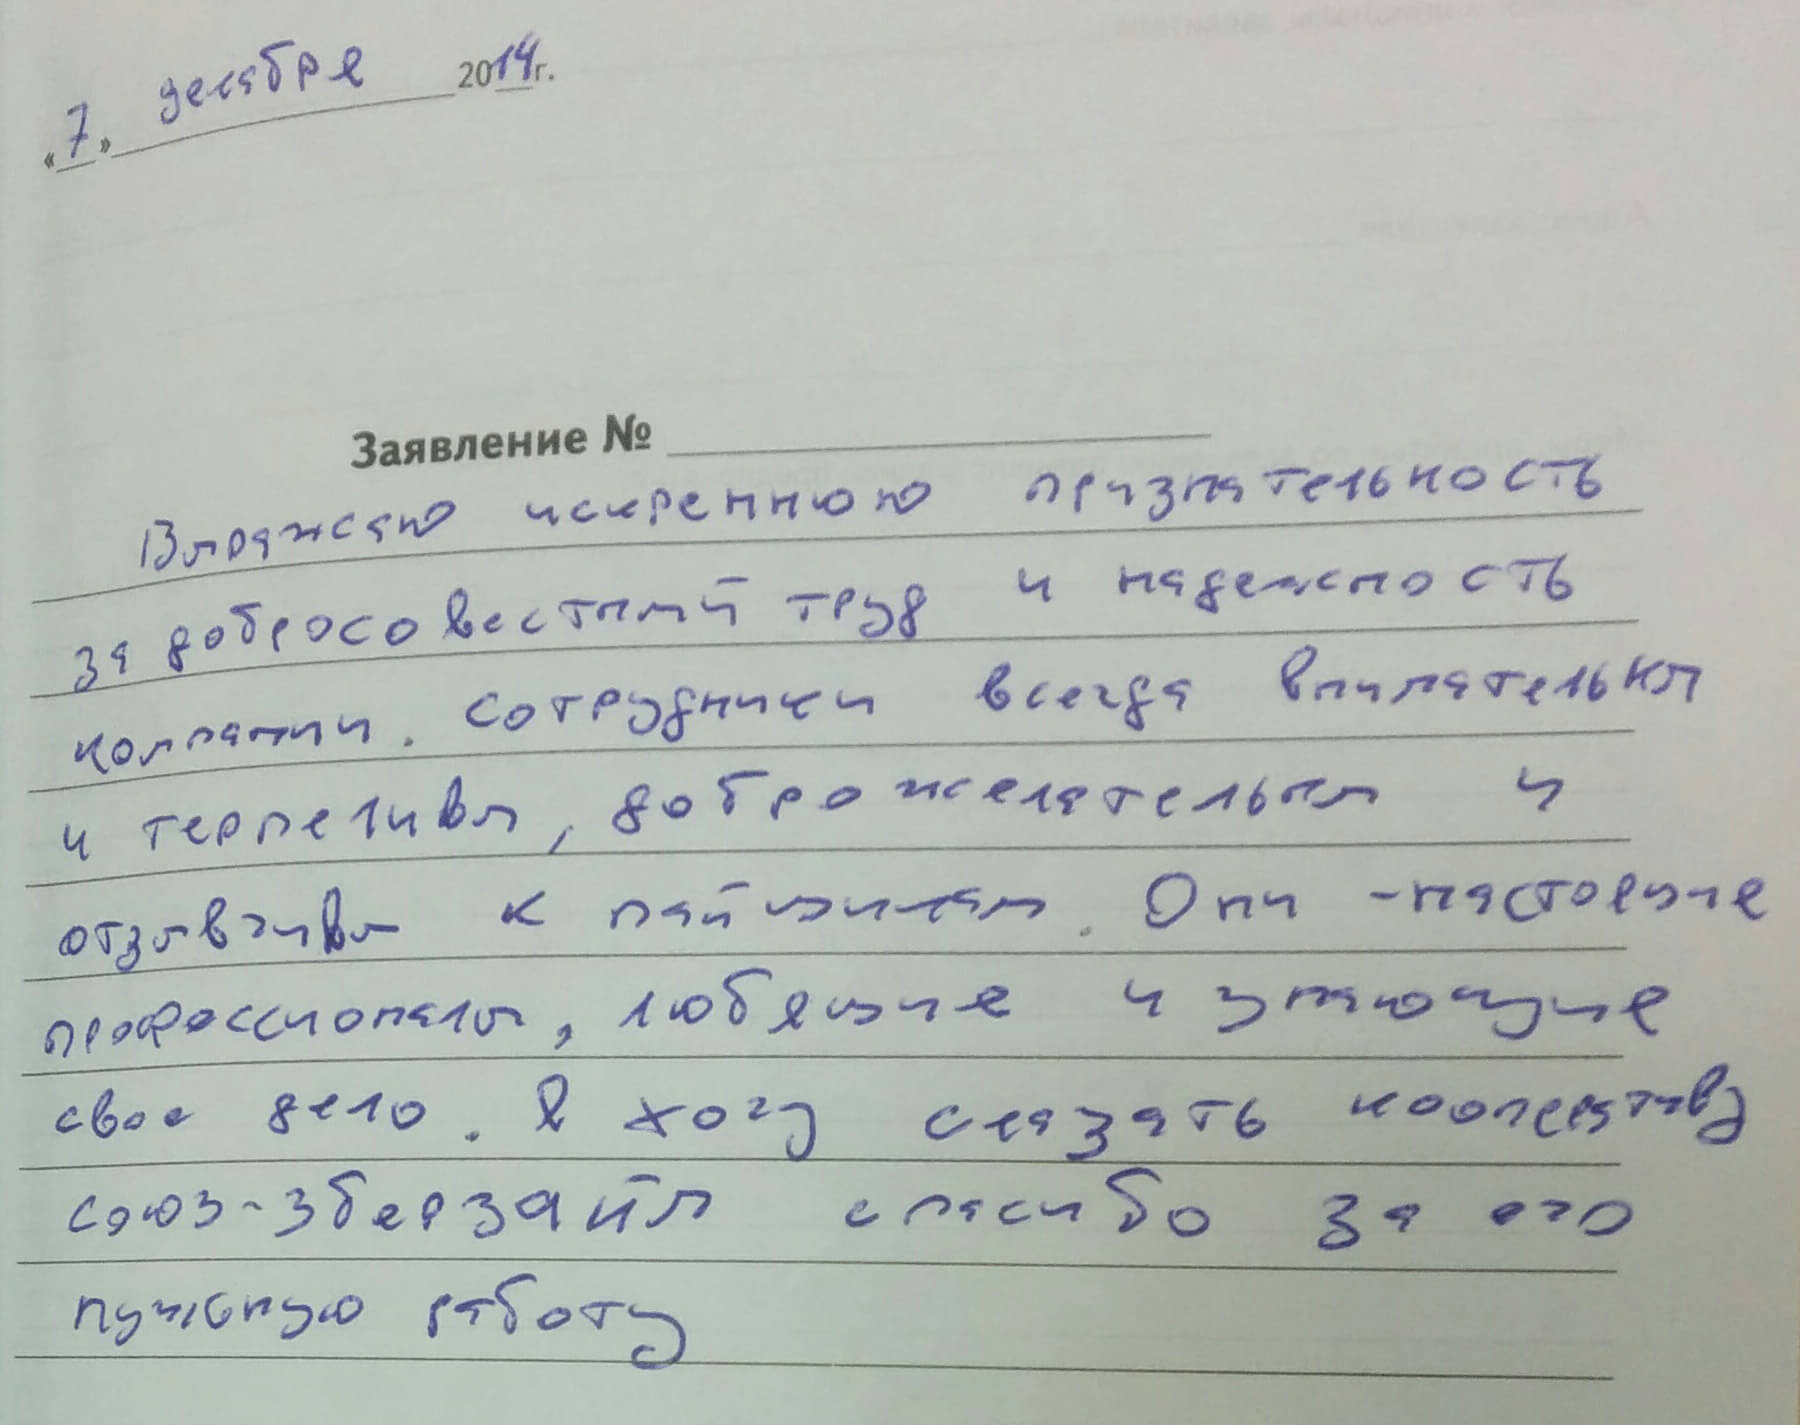 «7» декабря 2014г.
Заявление №
Выражаю искреннюю признательность
за добросовестный труд и надежность
компании. Сотрудники всегда внимательны
и терпеливы, доброжелательны и
отзывчивы к пайщикам. Они - настоящие
профессионалы, любящие и знающие
свое дело. Я хочу сказать кооперативу
союз-зберзайм спасибо за его
нужную работу